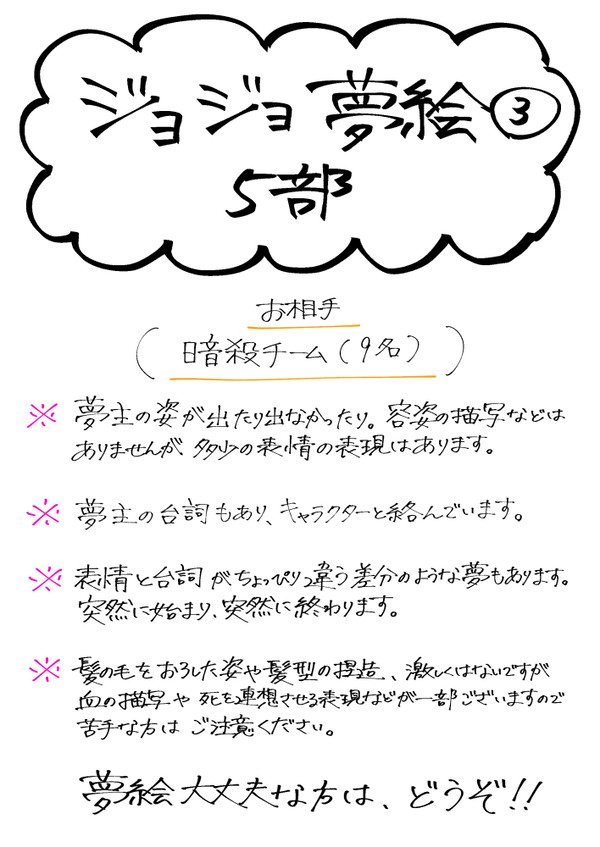 ジョジョ夢絵③
5部
お相手
(暗殺チーム(9名))
※ 夢主の姿が出たり出なかったり。容姿の描写などは
ありませんが、多少の表情の表現はあります。
※ 夢主の台詞もあり、キャラクターと絡んでいます。
※ 表情と台詞がちょっぴり違う差分のような夢もあります。
突然に始まり、突然に終わります。
※ 髪の毛をおろした姿や髪型の捏造、激しくはないですが
血の描写や死を連想させる表現などが一部ございますので
苦手な方はご注意ください。
夢絵大丈夫な方は、どうぞ!!